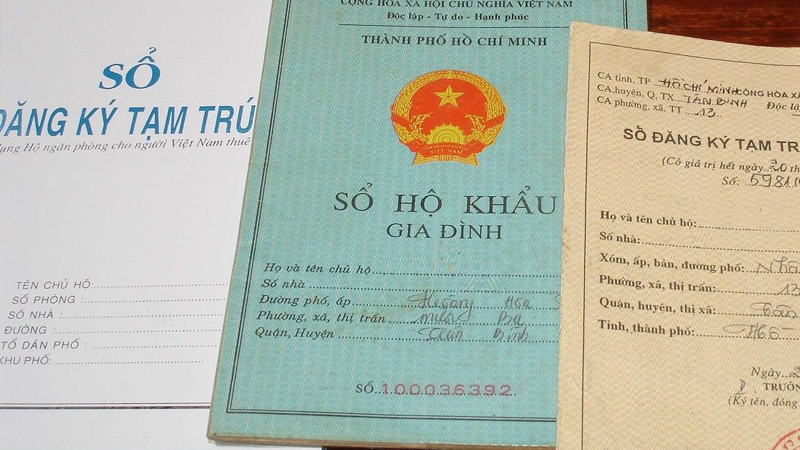 SỔ
ĐĂNG KÝ TẠM TRÚ
Hộ ngăn phòng cho người Việt Nam thuê
TÊN CHỦ HỘ
SỐ PHÒNG :
SỐ NHÀ :
ĐƯỜNG :
TỔ DÂN PHỐ :
KHU PHỐ:
CỘNG HÒA XÃ HỘI CHỦ NGHĨA VIỆT NAM
Độc lập - Tự do - Hạnh phúc
THÀNH PHỐ HỒ CHÍ MINH
VIỆT NAM
SỔ HỘ KHẨU
GIA ĐÌNH
Họ và tên chủ hộ
Số nhà
Đường phố, ấp Hoàng Hoa
Phường, xã, thị trấn mười Ba
Quận, Huyện Tân Bình
SỐ 100036392
CA tỉnh, TP HỒ CHÍ MINH CỘNG HÒA XÃ
CA huyện, Q, TX TÂN BÌNH Độc lập
CA phường, xã, TT 13
SỔ ĐĂNG KÝ TẠM TRÚ
(Có giá trị hết ngày 20 th
Số: 5981
Họ và tên chủ hộ:
Số nhà:
Xóm, ấp, bản, đường phố:
Phường, xã, thị trấn: 13
Quận, huyện, thị xã: Tân
Tỉnh, thành phố: Hồ
Ngày 2
TRƯỞN
(Ký tên, đóng